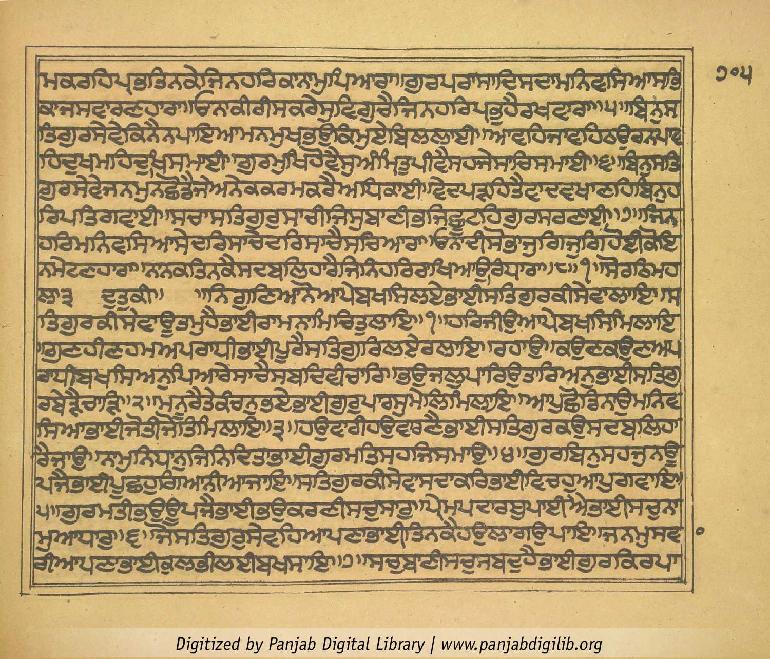 ਮਕਰਹਿਪ੍ਰਭਤਿਨਕੇਜਿਨਹਰਿਕਾਨਾਮੁਪਿਆਰਾ॥ਗੁਰਪਰਸਾਦਿਸਦਾਮਨਿਵਸਿਆਸਭਿ ੭੦੫
ਕਾਜਸਵਾਰਣਹਾਰਾ॥ਓਨਾਕੀਰੀਸਕਰੇਸੁਵਿਗੁਚੈਜਿਨਹਰਿਪ੍ਰਭੁਹੈਰਖਵਾਰਾ॥੫॥ਬਿਨੁਸ
ਤਿਗੁਰਸੇਵੇਕਿਨੈਨਪਾਇਆਮਨਮੁਖਭਉਕਿਮੁਏਬਿਲਲਾਈ॥ਆਵਹਿਜਾਵਹਿਠਉਰਨਪਾਵ
ਹਿਦੁਖਮਹਿਦੁਖਿਸਮਾਈ॥ਗੁਰਮੁਖਿਹੋਵੈਸੁਅੰਮ੍ਰਿਤੁਪੀਵੈਸਹਜੇਸਾਚਿਸਮਾਈ॥੬॥ਬਿਨੁਸਤਿ
ਗੁਰਸੇਵੇਜਨਮੁਨਛੋਡੈਜੇਅਨੇਕਕਰਮਕਰੈਅਧਿਕਾਈ॥ਵੇਦਪੜਹਿਤੈਵਾਦਵਖਾਣਹਿਬਿਨੁਹ
ਰਿਪਤਿਗਵਾਈ॥ਸਚਾਸਤਿਗੁਰੁਸਾਚੀਜਿਸੁਬਾਣੀਭਜਿਛੂਟਹਿਗੁਰਸਰਣਾਈ॥੭॥ਜਿਨ
ਹਰਿਮਨਿਵਸਿਆਸੇਦਰਿਸਾਚੇਦਰਿਸਾਚੈਸਚਿਆਰਾ॥ਓਨਾਦੀਸੋਭਾਜੁਗਿਜੁਗਿਹੋਈਕੋਇ
ਨਮੇਟਣਹਾਰਾ॥ਨਾਨਕਤਿਨਕੈਸਦਬਲਿਹਾਰੈਜਿਨਹਰਿਰਾਖਿਆਉਰਿਧਾਰਾ॥੮॥੧॥ਸੋਰਠਿਮਹ
ਲਾ੩ ਦੁਤੁਕੀ॥ ॥ਨਿਗੁਣਿਆਨੋਆਪੇਬਖਸਿਲਏਭਾਈਸਤਿਗੁਰਕੀਸੇਵਾਲਾਇ॥ਸ
ਤਿਗੁਰਕੀਸੇਵਾਊਤਮਹੈਭਾਈਰਾਮਨਾਮਿਚਿਤੁਲਾਇ॥੧॥ਹਰਿਜੀਉਆਪੇਬਖਸਿਮਿਲਾਇ
॥ਗੁਣਹੀਣਹਮਅਪਰਾਧੀਭਾਈਪੂਰੈਸਤਿਗੁਰਿਲਏਰਲਾਇ॥ਰਹਾਉ॥ਕਉਣਕਉਣਅਪ
ਰਾਧੀਬਖਸਿਅਨੁਪਿਆਰੇਸਾਚੈਸਬਦਿਵੀਚਾਰਿ॥ਭਉਜਲੁਪਾਰਿਉਤਾਰਿਅਨੁਭਾਈਸਤਿਗੁ
ਰਬੇੜੈਚਾੜਿ॥੨॥ਮਨੂਰੈਤੇਕੰਚਨਭਏਭਾਈਗੁਰੁਪਾਰਸੁਮੇਲਿਮਿਲਾਇ॥ਆਪੁਛੋਡਿਨਾਉਮਨਿਵ
ਸਿਆਭਾਈਜੋਤੀਜੋਤਿਮਿਲਾਇ॥੩॥ਹਉਵਾਰੀਹਉਵਾਰਣੈਭਾਈਸਤਿਗੁਰਕਉਸਦਬਲਿਹਾ
ਰੈਜਾਉ॥ਨਾਮੁਨਿਧਾਨੁਜਿਨਿਦਿਤਾਭਾਈਗੁਰਮਤਿਸਹਜਿਸਮਾਉ॥੪॥ਗੁਰਬਿਨੁਸਹਜੁਨਊ
ਪਜੈਭਾਈਪੂਛਹੁਗਿਆਨੀਆਜਾਇ॥ਸਤਿਗੁਰਕੀਸੇਵਸਦਾਕਰਿਭਾਈਵਿਚਹੁਆਪੁਗਵਾਇ॥
੫॥ਗੁਰਮਤੀਭਉਊਪਜੈਭਾਈਭਉਕਰਣੀਸਚੁਸਾਰੁ॥ਪ੍ਰੇਮਪਦਾਰਥੁਪਾਈਐਭਾਈਸਚੁਨਾ
ਮੁਆਧਾਰੁ॥੬॥ਜੋਸਤਿਗੁਰੁਸੇਵਹਿਆਪਣਾਭਾਈਤਿਨਕੈਹਉਲਾਗਉਪਾਇ॥ਜਨਮੁਸਵਾ
ਰੀਆਪਣਾਭਾਈਕੁਲੁਭੀਲਈਬਖਸਾਇ॥੭॥ਸਚੁਬਾਣੀਸਚੁਸਬਦੁਹੈਭਾਈਗੁਰਕਿਰਪਾ
Digitized by Panjab Digital Library | www.panjabdigilib.org